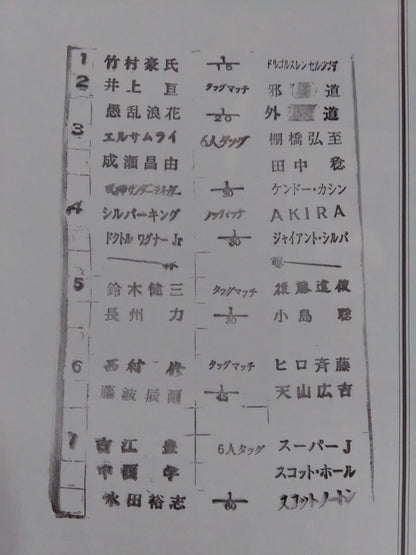 1 竹村豪氏 1/15 ドルゴルスレン セルジブデ
2 井上亘 タッグマッチ 邪 道
愚乱浪花 1/20 外 道
3 エルサムライ 6人タッグ 棚橋弘至
成瀬昌由 田中稔
獣神サンダーライガー 1/30 ケンドー・カシン
4 シルバーキング タッグマッチ AKIRA
ドクトル ワグナーJr 1/30 ジャイアント・シルバ
5 鈴木健三 タッグマッチ 後藤達俊
長州力 1/30 小島聡
6 西村修 タッグマッチ ヒロ斉藤
藤波辰爾 1/45 天山広吉
7 吉江豊 6人タッグ スーパーJ
中西学 スコット・ホール
永田裕志 1/60 スコットノートン